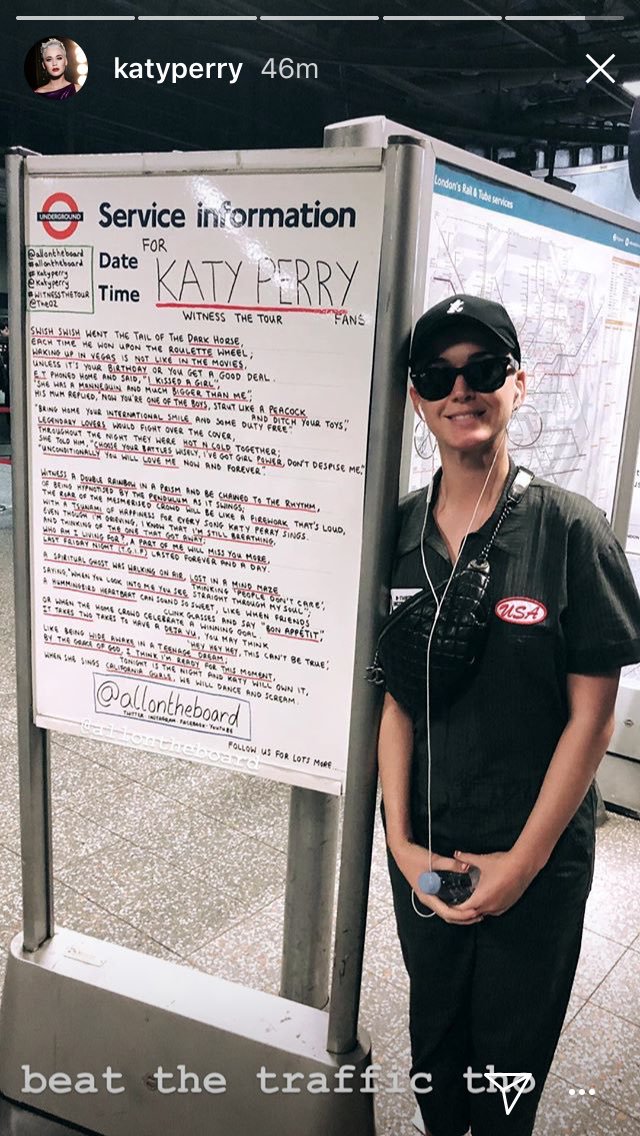 katyperry 46m
London's Rail & Tube services
UNDERGROUND
Service information
@allontheboard
#allontheboard
#katyperry
@katyperry
#WITNESSTHETOUR
@TheO2
Date FOR
Time KATY PERRY
WITNESS THE TOUR FANS
SWISH SWISH WENT THE TAIL OF THE DARK HORSE,
EACH TIME HE WON UPON THE ROULETTE WHEEL;
WAKING UP IN VEGAS IS NOT LIKE IN THE MOVIES,
UNLESS IT'S YOUR BIRTHDAY OR YOU GET A GOOD DEAL.
E.T PHONED HOME AND SAID, "I KISSED A GIRL",
"SHE WAS A MANNEQUIN AND MUCH BIGGER THAN ME",
HIS MUM REPLIED, "NOW YOU'RE ONE OF THE BOYS, STRUT LIKE A PEACOCK
AND DITCH YOUR TOYS,"
"BRING HOME YOUR INTERNATIONAL SMILE AND SOME DUTY FREE"
LEGENDARY LOVERS WOULD FIGHT OVER THE COVER,
THROUGHOUT THE NIGHT THEY WERE HOT N COLD TOGETHER;
SHE TOLD HIM, "CHOOSE YOUR BATTLES WISELY, I'VE GOT GIRL POWER, DON'T DESPISE ME,"
"UNCONDITIONALLY YOU WILL LOVE ME NOW AND FOREVER."
WITNESS A DOUBLE RAINBOW IN A PRISM AND BE CHAINED TO THE RHYTHM,
OF BEING HYPNOTISED BY THE PENDULUM AS IT SWINGS;
THE ROAR OF THE MESMERISED CROWD WILL BE LIKE A FIREWORK THAT'S LOUD,
WITH A TSUNAMI OF HAPPINESS FOR EVERY SONG KATY PERRY SINGS.
EVEN THOUGH I'M GRIEVING, I KNOW THAT I'M STILL BREATHING,
AND THINKING OF THE ONE THAT GOT AWAY;
WHO AM I LIVING FOR?, A PART OF ME WILL MISS YOU MORE,
LAST FRIDAY NIGHT (T.G.I.F) LASTED FOREVER AND A DAY
A SPIRITUAL GHOST WAS WALKING ON AIR, LOST IN A MIND MAZE
THINKING "PEOPLE DON'T CARE",
SAYING "WHEN YOU LOOK INTO ME YOU SEE STRAIGHT THROUGH MY SOUL";
A HUMMINGBIRD HEARTBEAT CAN SOUND SO SWEET, LIKE WHEN FRIENDS
CLINK GLASSES AND SAY "BON APPÉTIT",
OR WHEN THE HOME CROWD CELEBRATE A WINNING GOAL.
IT TAKES TWO TAKES TO HAVE A DEJA VU, YOU MAY THINK
HEY HEY HEY, THIS CAN'T BE TRUE,
LIKE BEING WIDE AWAKE IN A TEENAGE DREAM;
BY THE GRACE OF GOD, I THINK I'M READY FOR THIS MOMENT,
TONIGHT IS THE NIGHT AND KATY WILL OWN IT,
WHEN SHE SINGS CALIFORNIA GURLS, WE WILL DANCE AND SCREAM.
@allontheboard
TWITTER INSTAGRAM FACEBOOK YOUTUBE
@allontheboard
FOLLOW US FOR LOTS MORE...
USA
beat the traffic tho